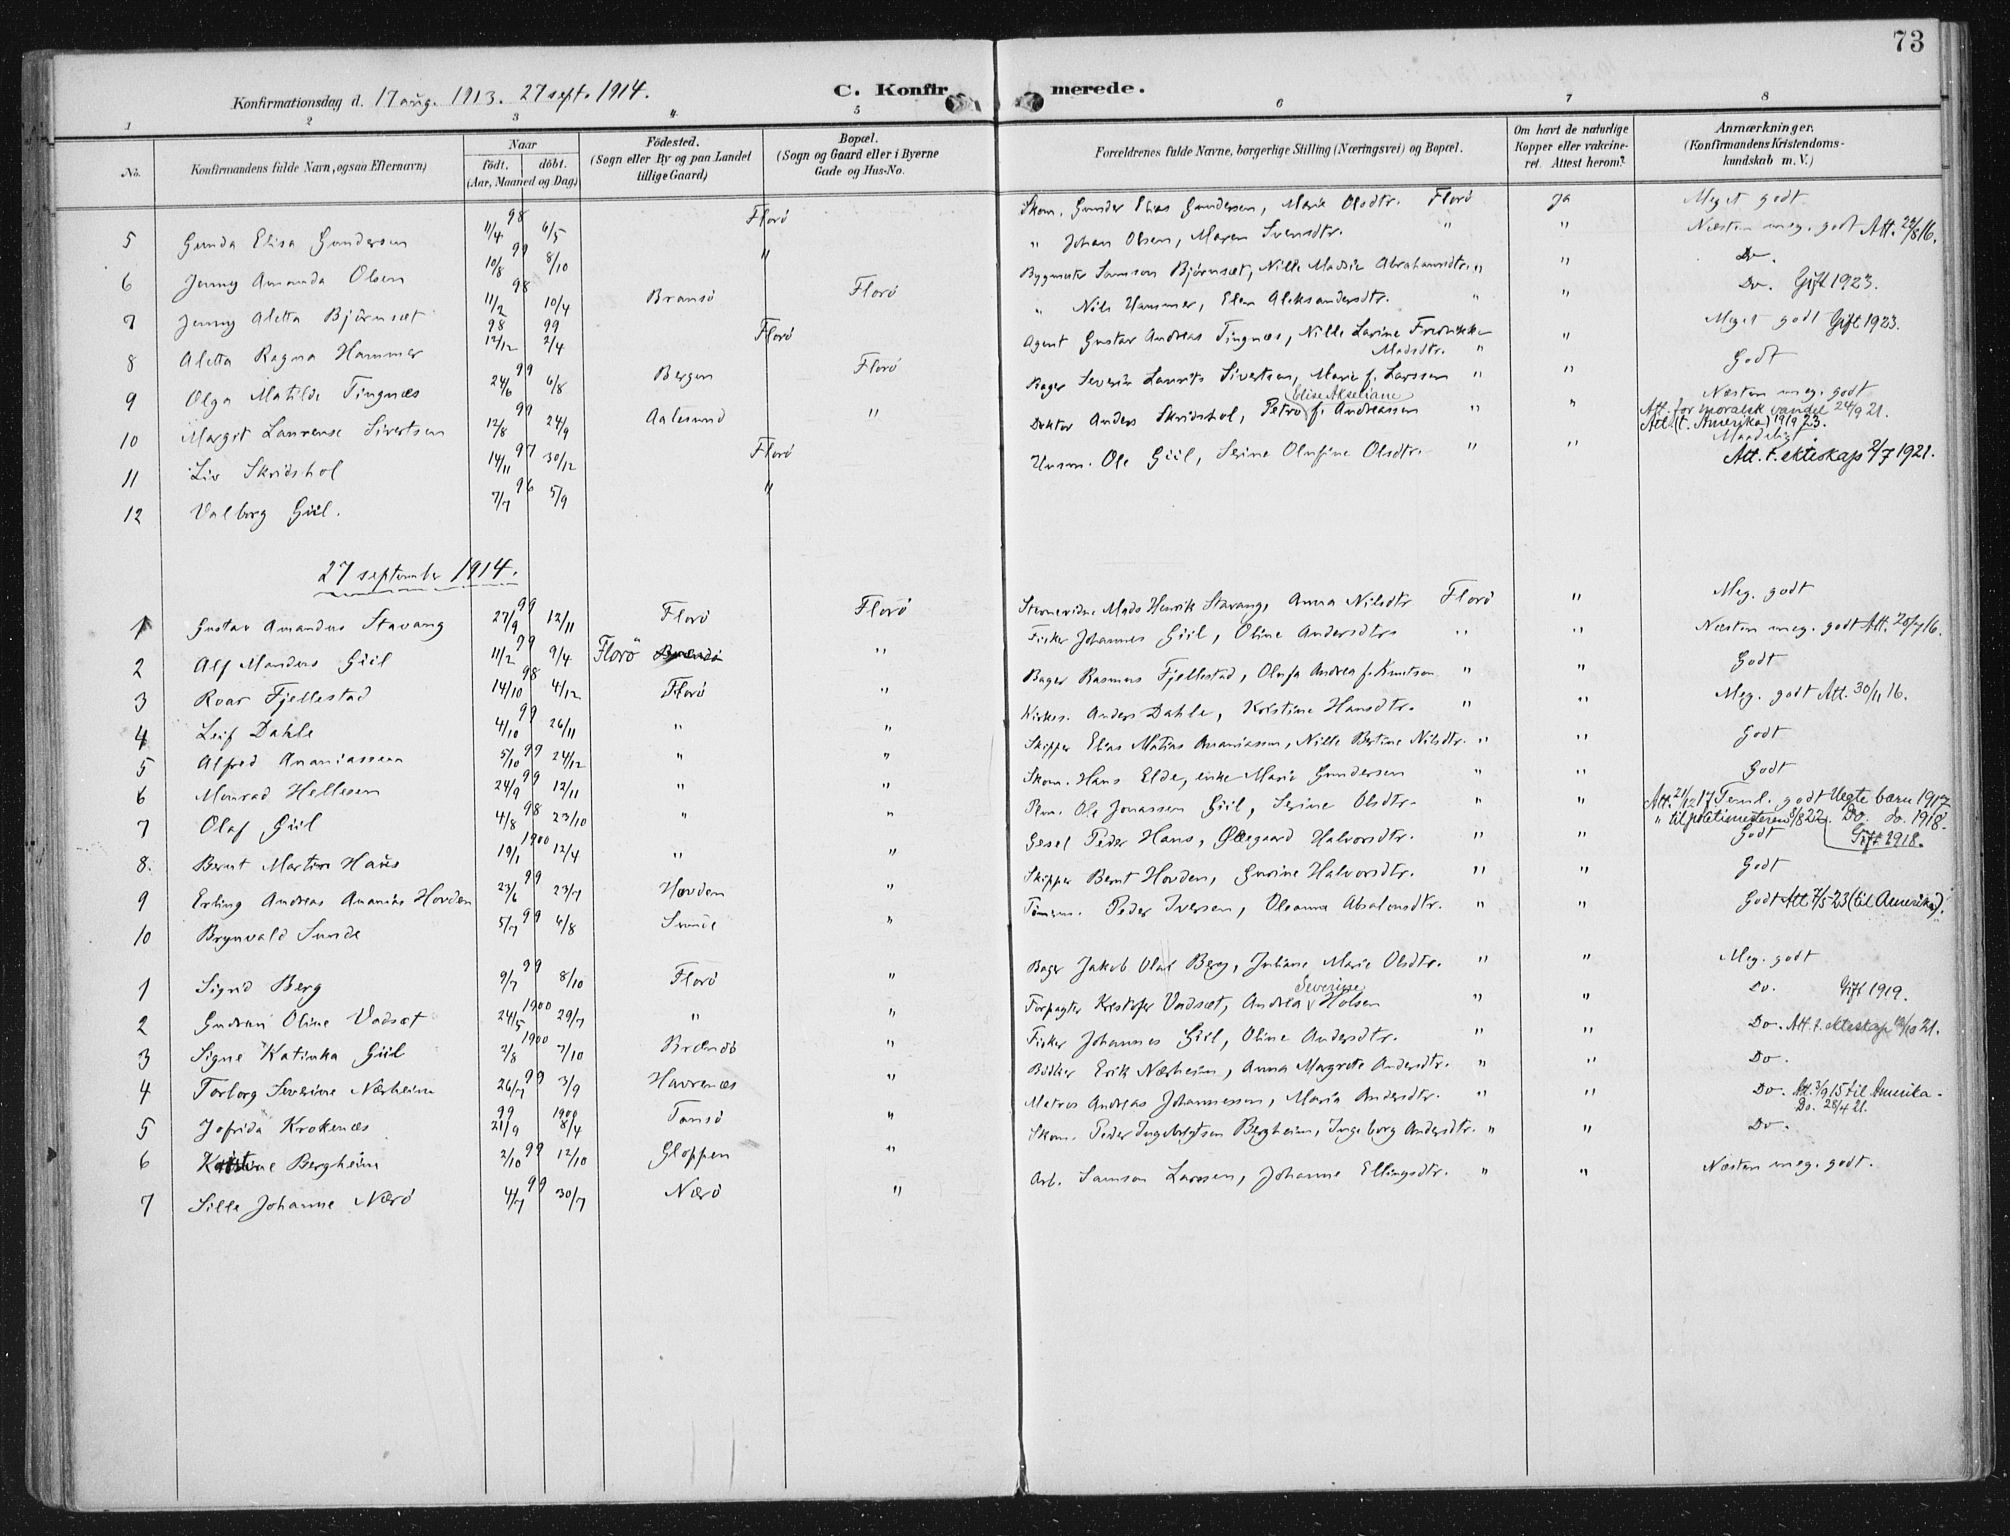 73
Konfirmationsdag d. 17 aug. 1913. 27 sept. 1914. C. Konfirmerede.
1 2 3 4 5 6 7 8
No. Konfirmandens fulde Navn, ogsaa Efternavn) Naar födt. döbt. (Aar, Maaned og Dag) Födested. (Sogn eller By og paa Landet tillige Gaard) Bopæl. (Sogn og Gaard eller i Byerne Gade og Hus-No. Forældrenes fulde Navne, borgerlige Stilling (Næringsvei) og Bopæl. Om havt de naturlige Kopper eller vakcineret. Attest herom? Anmærkninger. (Konfirmandens Kristendomskundskab m. V.)
5 Gunda Elisa Gundersen 11/4 98 6/5 Florö Skom. Gunder Elias Gundersen, Marie Olsdtr. Florö ja Meget godt
6 Jenny Amanda Olsen 10/8 99 8/10 " " Johan Olsen, Maren Svensdtr. " " Næsten meg. godt Att. 24/8 16.
7 Jenny Aletta Björnsæt 11/2 98 10/4 Bransö Florö Bygmester Samson Björnsæt, Nille Madsie Abrahamsdtr. " " Do.
8 Aletta Ragna Hammer 98 12/12 99 2/4 Florö " Nils Hammer, Elen Aleksandersdtr. " " Do. Gift 1923.
9 Olga Matilde Tingnæs 24/6 99 6/8 Bergen Florö Agent Gustav Andreas Tingnæs, Nille Larine Fredrikke Madsdtr. " " Meget godt Gift 1923.
10 Margit Laurense Sivertsen 12/8 99 24/9 Aalesund " Bager Severin Laurits Sivertsen, Marie f. Larssen " " Godt
11 Liv Skridshol 14/11 97 30/12 Florö Doktor Anders Skridshol, Petra Elise Akseliane f. Andreassen " " Næsten meg. godt Att. for moralsk vandel 24/9 21. Att. (t. Amerika) 19/9 23.
12 Valborg Giil. 7/7 96 5/9 " Husm. Ole Giil, Serine Olufine Olsdtr. " " Maadeligt. Att. t. ekteskap 2/7 1921.
27 september 1914.
1 Gustav Amandus Stavang 27/9 99 12/11 Florö Florö Mads Henrik Stavang, Anna Nilsdtr Florö " Meg. godt
2 Alf Mandus Giil 11/2 99 9/4 Florö " Fisker Johannes Giil, Oline Andersdtr. " " Næsten meg. godt Att. 20/7 16.
3 Roar Fjellestad 14/10 98 4/12 Florö " Bager Rasmus Fjellestad, Olufa Andrea f. Knutsen " " Godt
4 Leif Dahle 4/10 99 26/11 " " Kirkes. Anders Dahle, Kristine Hansdtr. " " Meg. godt Att. 30/11 16.
5 Alfred Ananiassen 5/10 99 24/12 " " Skipper Elias Matias Ananiassen, Nille Bertine Nilsdtr. " " Godt
6 Monrad Hellesen 24/9 99 12/11 " " Skom. Hans Elde, enke Marie Gundersen " " Godt
7 Olaf Giil 4/8 98 23/10 " " Plm. Ole Jonassen Giil, Serine Olsdtr. " " Att. 21/12 17 Teml. godt Uegte barn 1917 " til politimesteren 8/8 22. Do. do. 1918. Gift 1918.
8. Bernt Martin Haus 19/1 1900 12/4 " " Gesel Peder Hans, Ølegaard Halvorsdtr. " " Godt
9 Erling Andreas Ananias Hovden 23/6 99 23/7 Hovden " Skipper Bernt Hovden, Gurine Halvorsdtr. " " Godt
10 Brynvald Sunde 5/7 99 6/8 Sunde " Tömerm. Peder Iversen, Oleanna Absalonsdtr. " " Godt Att 7/5-23 (til Amerika).
1 Sigrid Berg 9/7 99 8/10 Florö " Bager Jakob Olai Berg, Juliane Marie Olsdtr. " " Meg. godt
2 Gudrun Oline Vadsæt 24/5 1900 29/7 " " Forpagter Kristofer Vadsæt, Andrea Severine Holsen " " Do. Gift 1919.
3 Signe Katinka Giil 2/8 1900 7/10 Brændö " Fisker Johannes Giil, Oline Andersdtr. " " Do. Att. t. ekteskap 12/10 21.
4 Torborg Severine Nærheim 26/7 99 3/9 Havrenæs " Bödker Erik Nærheim, Anna Margrete Andersdtr. " " Do.
5 Jofrida Krokenæs 99 21/9 1900 8/4 Tansö " Matros Andreas Johannessen, Maria Andersdtr. " " Do. Att. 3/9 15 til Amerika. Do. 28/4 21.
6 Kristine Bergheim 2/10 99 12/10 Gloppen " Skom. Peder Ingebrigtsen Bergheim, Ingeborg Andersdtr. " " Do.
7 Sille Johanne Nærö 4/7 99 30/7 Nærö " Arb. Samson Larssen, Johanne Ellingsdtr. " " Næsten meg. godt.